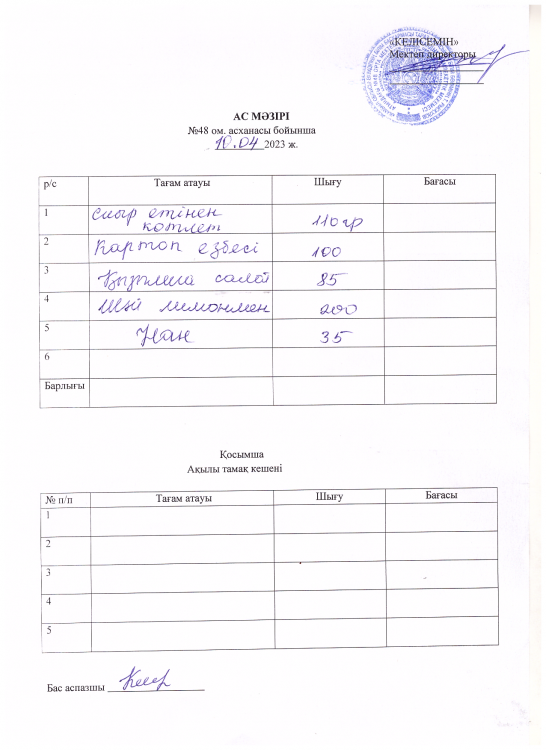 «КЕЛІСЕМІН»
Мектеп директоры
АС МӘЗІРІ
№48 ом. асханасы бойынша
10.04 2023 ж.
р/с Тағам атауы Шығу Бағасы
1 Сиыр етінен котлет 110 гр
2 Картоп езбесі 100
3 Қызылша салат 85
4 Шәй лимонмен 200
5 Нан 35
6
Барлығы
Қосымша
Ақылы тамақ кешені
№ п/п Тағам атауы Шығу Бағасы
1
2
3
4
5
Бас аспазшы